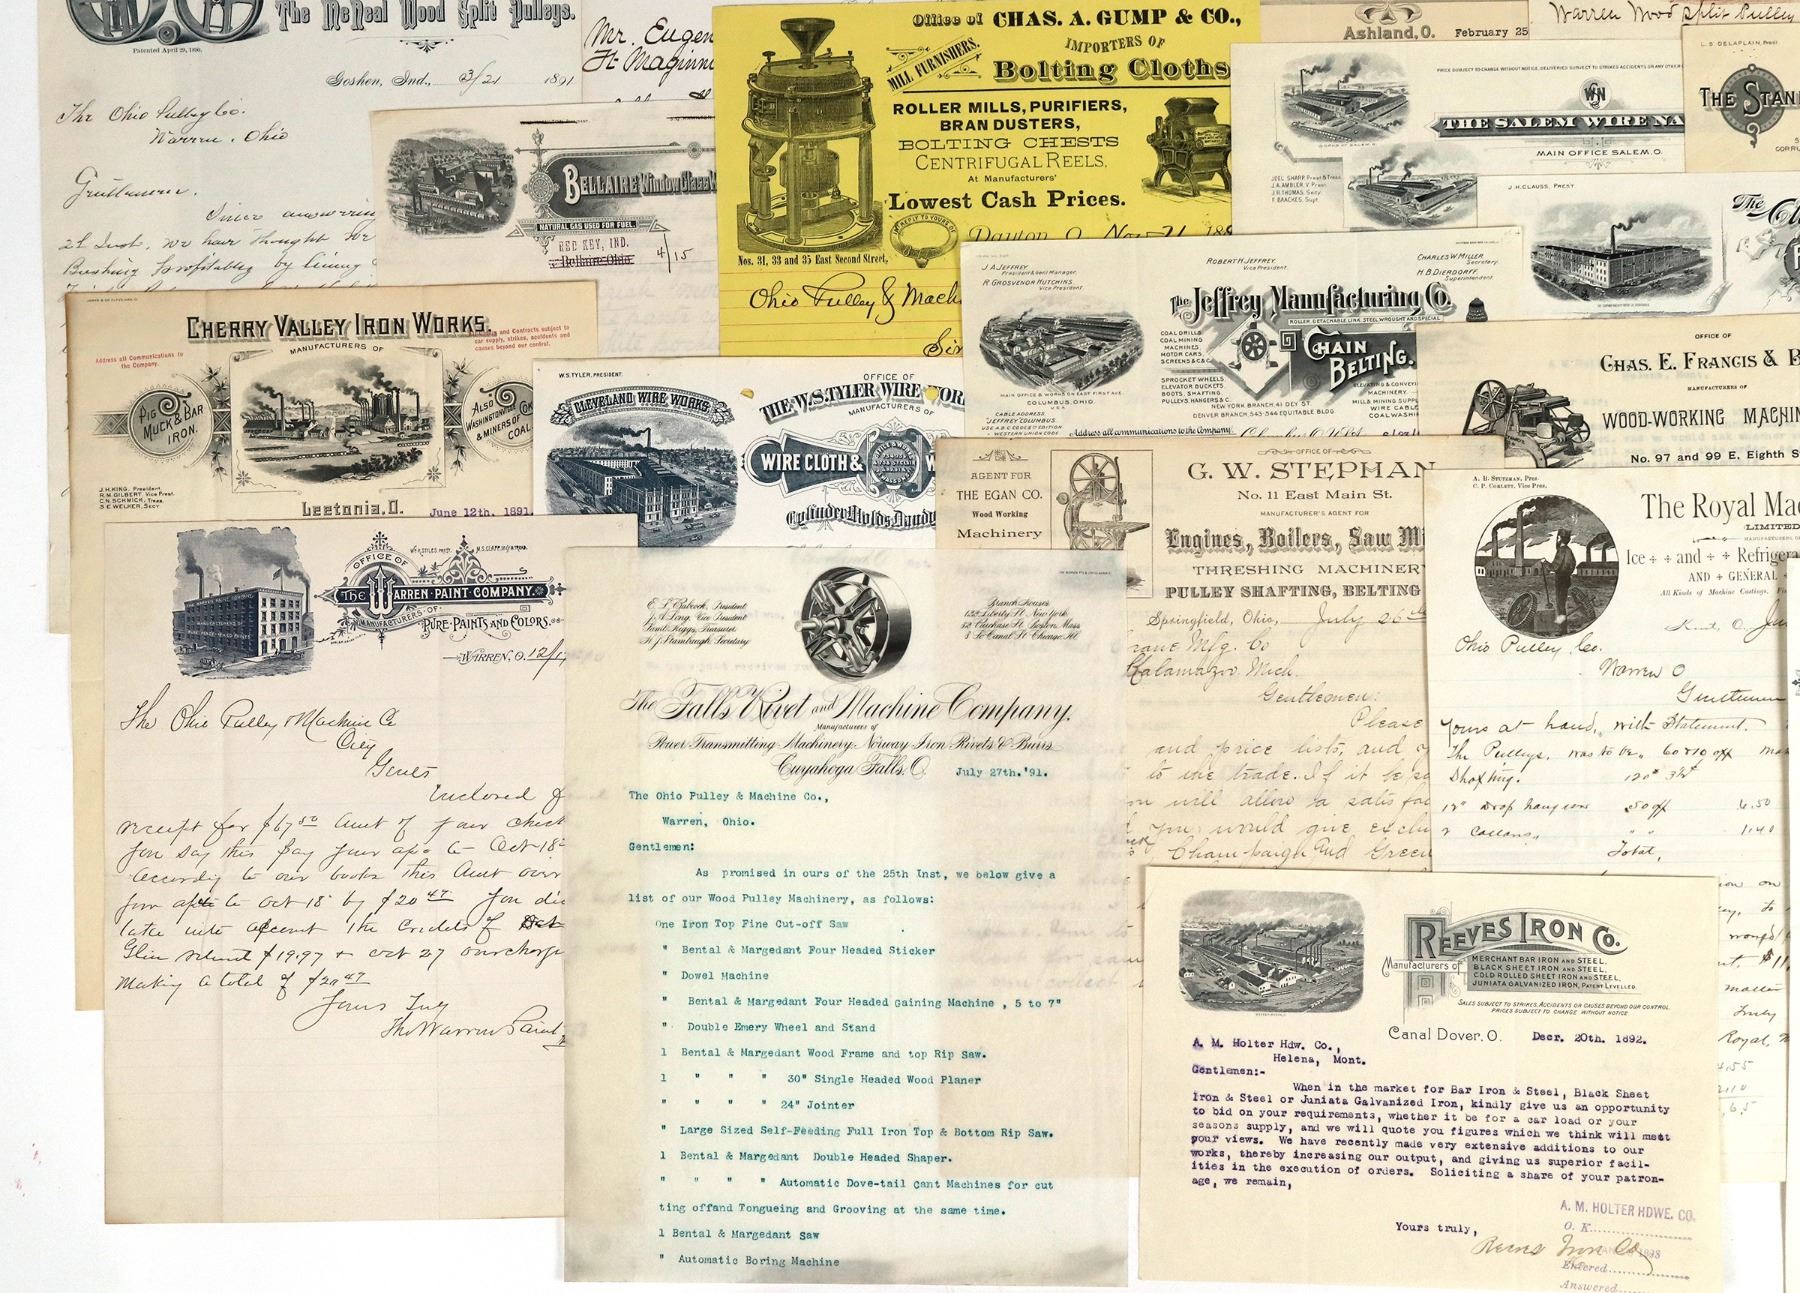 The McNeal Wood Split Pulleys.
Patented April 29, 1890.
Goshen, Ind., 3/21 1891
The Ohio Pulley Co.
Warren, Ohio
Gentlemen.
Since answering
21 Inst, we have thought we
Mr. Eugen
Ft. Maginni
BELLAIRE Window Glass W
NATURAL GAS USED FOR FUEL.
RED KEY, IND.
Bellaire Ohio
4/15
Office of CHAS. A. GUMP & CO.,
MILL FURNISHERS.
IMPORTERS OF
Bolting Cloths
ROLLER MILLS, PURIFIERS,
BRAN DUSTERS,
BOLTING CHESTS
CENTRIFUGAL REELS,
At Manufacturers'
Lowest Cash Prices.
IN REPLY TO YOURS OF
Nos. 31, 33 and 35 East Second Street,
Dayton, O. Nov 21 189
Ohio Pulley & Mach
Sir
Ashland, O. February 25
Warren Wood Split Pulley
PRICE SUBJECT TO CHANGE WITHOUT NOTICE, DELIVERIES SUBJECT TO STRIKES ACCIDENTS OR ANY OTHER
THE SALEM WIRE NA
MAIN OFFICE SALEM, O.
JOEL SHARP, Prest & Treas.
J.A. AMBLER, V. Prest.
J.R. THOMAS, Secy
F. BAACKES, Supt.
L. S. DELAPLAIN, Prest
THE STAN
CORRU
J. H. CLAUSS, PREST
The Cl
J. A. JEFFREY,
President & Genl Manager.
R. GROSVENOR HUTCHINS,
Vice President
ROBERT H. JEFFREY,
Vice President.
CHARLES W. MILLER,
Secretary.
H. B. DIERDORFF,
Superintendent.
The Jeffrey Manufacturing Co.
ROLLER, DETACHABLE LINK, STEEL WROUGHT AND SPECIAL
CHAIN BELTING.
COAL DRILLS
COAL MINING
MACHINES,
MOTOR CARS,
SCREENS & C & C
SPROCKET WHEELS,
ELEVATOR BUCKETS,
BOOTS, SHAFTING,
PULLEYS, HANGERS &C.
ELEVATING & CONVEYI
MACHINERY.
MILLS MINING SUPPL
WIRE CABLE
COAL WASHI
MAIN OFFICE & WORKS ON EAST FIRST AVE.
COLUMBUS, OHIO.
U.S.A.
CABLE ADDRESS,
"JEFFREY COLUMBUS"
USE A.B.C. CODE 5th EDITION
& WESTERN UNION CODE
NEW YORK BRANCH, 41 DEY ST.
DENVER BRANCH, 543-544 EQUITABLE BLDG
Address all communications to the Company.
OFFICE OF
CHAS. E. FRANCIS & B
MANUFACTURERS OF
WOOD-WORKING MACHIN
No. 97 and 99 E. Eighth S
CHERRY VALLEY IRON WORKS.
MANUFACTURERS OF
Address all Communications to
the Company.
and Contracts subject to
car supply, strikes, accidents and
causes beyond our control.
PIG
MUCK & BAR
IRON.
ALSO
WASHINGTONVILLE COKE
& MINERS OF
COAL
J. H. KING, President
R. M. GILBERT, Vice Prest.
C. N. SCHMICK, Treas.
S. E. WELKER, Secy
Leetonia, O. June 12th, 1891.
W. S. TYLER, PRESIDENT.
OFFICE OF
CLEVELAND WIRE WORKS
THE W.S. TYLER WIRE WOR
MANUFACTURERS OF
WIRE CLOTH &
Cylinder Molds, Dandy
AGENT FOR
THE EGAN CO.
Wood Working
Machinery
OFFICE OF
G. W. STEPHAN
No. 11 East Main St.
MANUFACTURER'S AGENT FOR
Engines, Boilers, Saw Mi
THRESHING MACHINERY
PULLEY SHAFTING, BELTING
Springfield, Ohio, July 26th
Crane Mfg. Co
Kalamazoo Mich.
Gentlemen:
Please
and price lists, and
to the trade. If it be so
will allow a satisfac
you would give exclu
Champaign and Green
A. B. STUTZMAN, Pres.
C. P. CORLETT, Vice Pres.
The Royal Mac
LIMITED
Ice and Refrigera
AND GENERAL
All Kinds of Machine Castings,
Kent, O.
Ohio Pulley Co.
Warren O
Gentlemen
Yours at hand, with Statement.
The Pulleys, was to be 60 & 10 off
Shafting.
12" Drop hangers 50 off 6.50
2 Collars, " " 1.40
Total,
OFFICE OF
THE WARREN PAINT COMPANY.
MANUFACTURERS OF
PURE PAINTS AND COLORS.
WARREN, O. 12/1
The Ohio Pulley & Machine Co
City
Gents
Enclosed f
receipt for $67.50 Amt of your check
you say this pay your a/c to Oct 18th
According to our books this Amt over
your a/c to Oct 18 by $20.47 You di
take into account the credits of
Glue returned $19.97 + Oct 27 overcharge
Making a total of $20.47
Yours Truly
The Warren Paint
E. L. Babcock, President
J. A. Long, Vice President
Saml. Higgs, Treasurer
W. J. Stambaugh, Secretary
Branch Houses
128 Liberty St. New York
38 Purchase St. Boston, Mass
3 So Canal St. Chicago, Ill
The Falls Rivet and Machine Company.
Manufacturers of
Power Transmitting Machinery, Norway Iron Rivets & Burrs
Cuyahoga Falls, O. July 27th.'91.
The Ohio Pulley & Machine Co.,
Warren, Ohio.
Gentlemen:
As promised in ours of the 25th Inst, we below give a
list of our Wood Pulley Machinery, as follows:
One Iron Top Fine Cut-off Saw
" Bental & Margedant Four Headed Sticker
" Dowel Machine
" Bental & Margedant Four Headed Gaining Machine , 5 to 7"
" Double Emery Wheel and Stand
1 Bental & Margedant Wood Frame and top Rip Saw.
1 " " " 30" Single Headed Wood Planer
" " " " 24" Jointer
" Large Sized Self-Feeding Full Iron Top & Bottom Rip Saw.
1 Bental & Margedant Double Headed Shaper.
" " " " Automatic Dove-tail Cant Machines for cut
ting offand Tongueing and Grooving at the same time.
1 Bental & Margedant Saw
" Automatic Boring Machine
REEVES IRON CO.
Manufacturers of
MERCHANT BAR IRON AND STEEL,
BLACK SHEET IRON AND STEEL,
COLD ROLLED SHEET IRON AND STEEL,
JUNIATA GALVANIZED IRON, PATENT LEVELLED.
SALES SUBJECT TO STRIKES, ACCIDENTS OR CAUSES BEYOND OUR CONTROL.
PRICES SUBJECT TO CHANGE WITHOUT NOTICE
Canal Dover, O. Decr. 20th. 1892.
A. M. Holter Hdw. Co.,
Helena, Mont.
Gentlemen:-
When in the market for Bar Iron & Steel, Black Sheet
Iron & Steel or Juniata Galvanized Iron, kindly give us an opportunity
to bid on your requirements, whether it be for a car load or your
seasons supply, and we will quote you figures which we think will meet
your views. We have recently made very extensive additions to our
works, thereby increasing our output, and giving us superior facil-
ities in the execution of orders. Soliciting a share of your patron-
age, we remain,
Yours truly,
Reeves Iron Co
A. M. HOLTER HDWE. CO.
O. K.
Entered
Answered